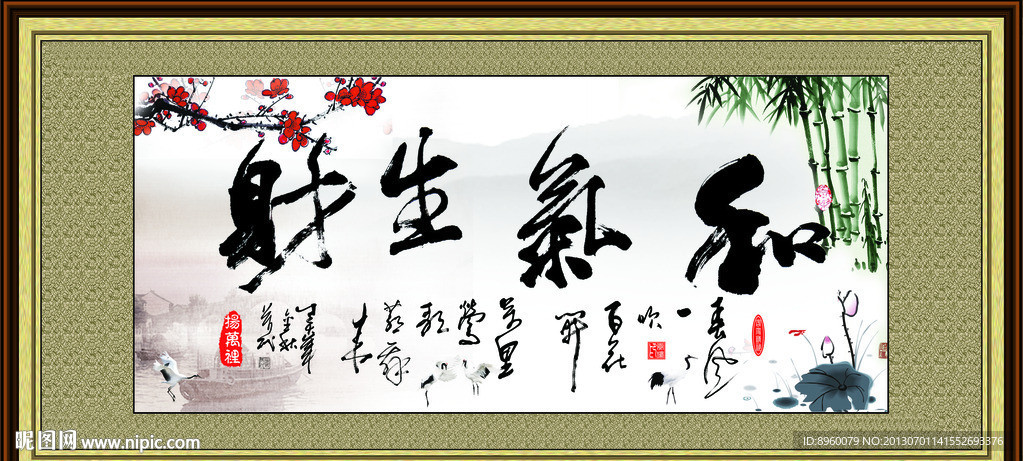 和氣生財
春風一吹百花開
萬里鶯歌燕舞来
揚萬裡
昵图网 www.nipic.com
ID:8960079 NO:20130701141552693376